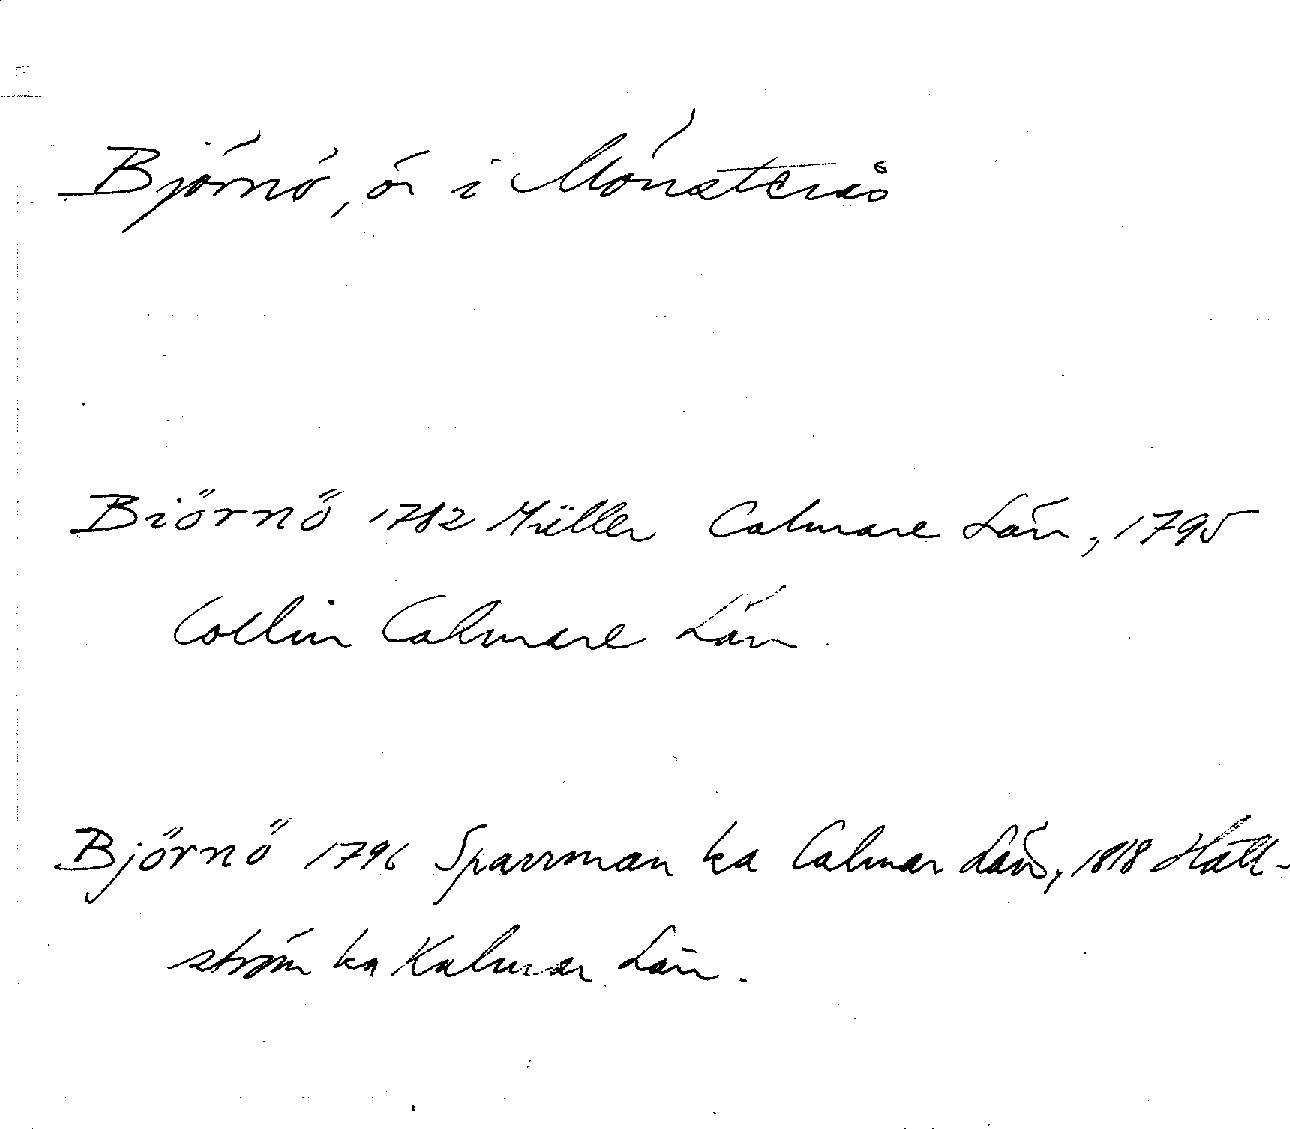 Björnö, ön i Mönsterås
Biörnö 1782 Müller Calmare Län, 1795
Collin Calmare Län.
Björnö 1796 Sparrman ka Calmar Län, 1818 Häll-
ström ka Kalmar Län.